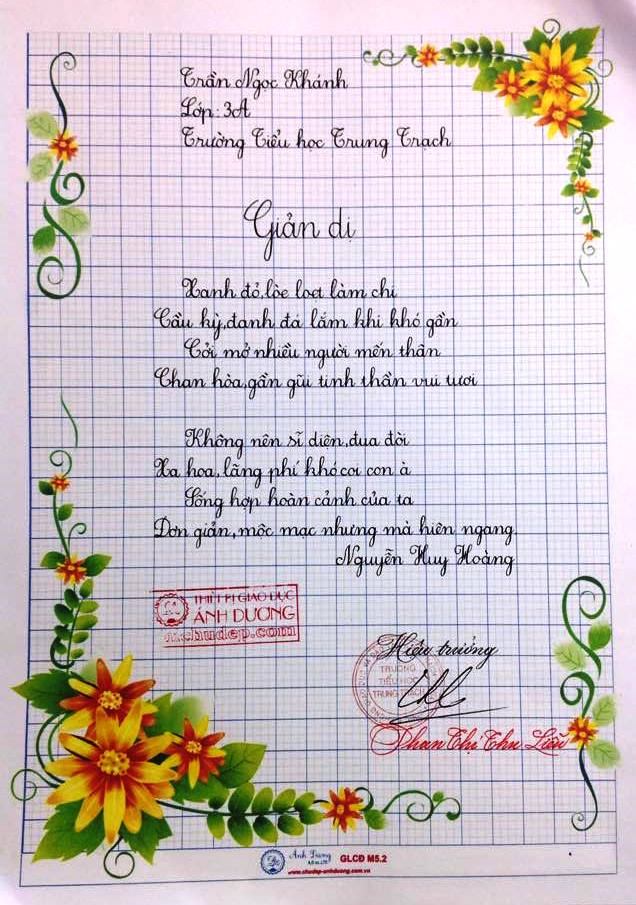 Trần Ngọc Khánh
Lớp: 3A
Trường Tiểu học Trung Trạch
Giản dị
Xanh đỏ, lòe loẹt làm chi
Cầu kỳ, đanh đá lắm khi khó gần
Cởi mở nhiều người mến thân
Chan hòa, gần gũi tinh thần vui tươi
Không nên sĩ diện, đua đòi
Xa hoa, lãng phí khó coi con à
Sống hợp hoàn cảnh của ta
Đơn giản, mộc mạc nhưng mà hiên ngang
Nguyễn Huy Hoàng
THIẾT BỊ GIÁO DỤC
ÁNH DƯƠNG
Hiệu trưởng
TRƯỜNG
TIỂU HỌC
TRUNG TRẠCH
Phan Thị Thu Liễu
GLCĐ M5.2
www.chudep-anhduong.com.vn